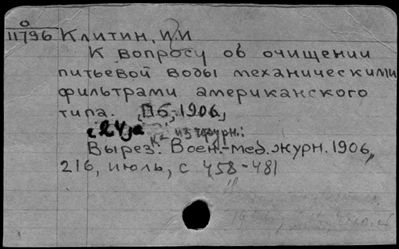 11796 Клитин, И.И
К вопросу об очищении
питьевой воды механическими
фильтрами американского
типа. Пб, 1906,
с 24 из журн.:
Вырез: Воен.-мед. журн. 1906,
216, июль, с 458-481